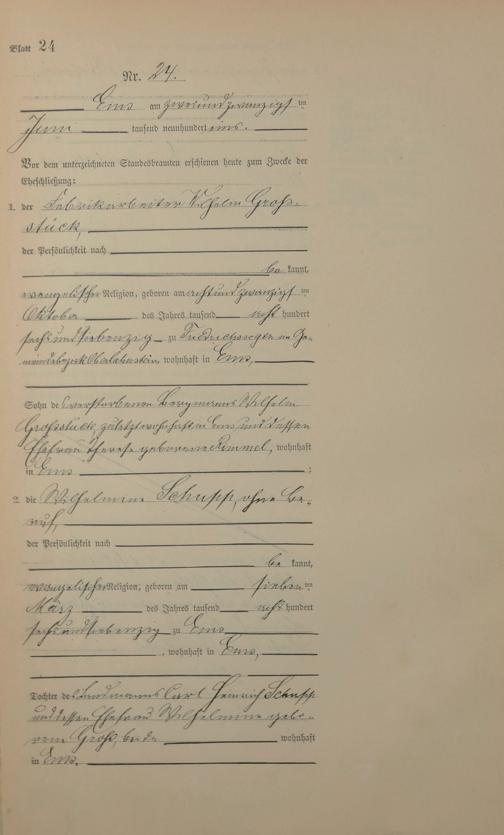 Blatt 24
Nr. 24.
Ems am zweiundzwanzigsten
Juni tausend neunhundert eins.
Vor dem unterzeichneten Standesbeamten erschienen heute zum Zwecke der
Eheschließung:
1. der Fabrikarbeiter Wilhelm Groß-
stück,
der Persönlichkeit nach
be kannt,
evangelischer Religion, geboren am achtundzwanzigsten
Oktober des Jahres tausend acht hundert
sechsundsiebenzig zu
wohnhaft in Ems,
Sohn des verstorbenen Bergmanns Wilhelm
Großstück, zuletzt wohnhaft in Ems und dessen
Ehefrau Therese geborene wohnhaft
in Ems ;
2. die Wilhelmine Schupp, ohne Be-
ruf,
der Persönlichkeit nach
be kannt,
evangelischer Religion, geboren am siebenten
März des Jahres tausend acht hundert
sechsundsiebenzig zu Ems
, wohnhaft in Ems,
Tochter des Landmanns Carl Heinrich Schupp
und dessen Ehefrau Wilhelmine gebo-
rene Groß, beide wohnhaft
in Ems.